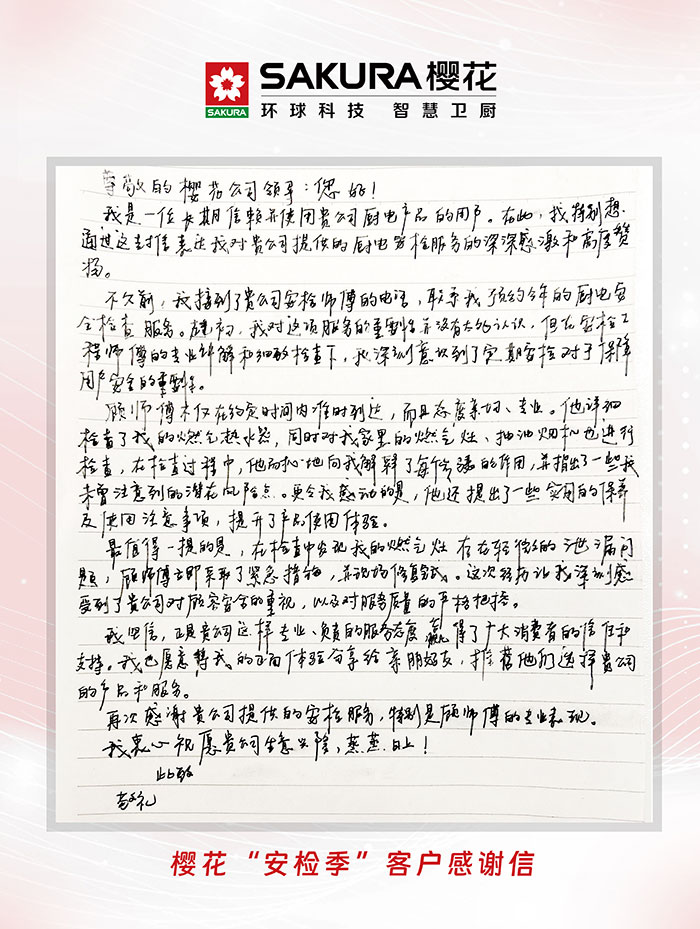 SAKURA樱花
SAKURA
环球科技 智慧卫厨
尊敬的樱花公司领导:您好!
我是一位长期信赖并使用贵公司厨电产品的用户。在此,我特别想
通过这封信表达我对贵公司提供的厨电安检服务的深深感激和高度赞
扬。
不久前,我接到了贵公司安检师傅的电话,联系我预约今年的厨电安
全检查服务。起初,我对这项服务的重要性并没有太多认识,但在安检工
程师傅的专业讲解和细致检查下,我深刻意识到了定期安检对于保障
用户安全的重要性。
顾师傅不仅在约定时间内准时到达,而且态度亲切、专业。他详细
检查了我的燃气热水器,同时对我家里的燃气灶、抽油烟机也进行
检查,在检查过程中,他耐心地向我解释了每个步骤的作用,并指出了一些我
未曾注意到的潜在风险点。更令我感动的是,他还提出了一些实用的保养
及使用注意事项,提升了产品使用体验。
最值得一提的是,在检查中发现我的燃气灶存在轻微的泄漏问
题,顾师傅立即采取了紧急措施,并现场修复测试。这次经历让我深刻感
受到了贵公司对顾客安全的重视,以及对服务质量的严格把控。
我坚信,正是贵公司这样专业、负责的服务态度赢得了广大消费者的信任和
支持。我也愿意将我的正面体验分享给亲朋好友,推荐他们选择贵公司
的产品和服务。
再次感谢贵公司提供的安检服务,特别是顾师傅的专业表现。
我衷心祝愿贵公司生意兴隆,蒸蒸日上!
此致
敬礼
樱花“安检季”客户感谢信